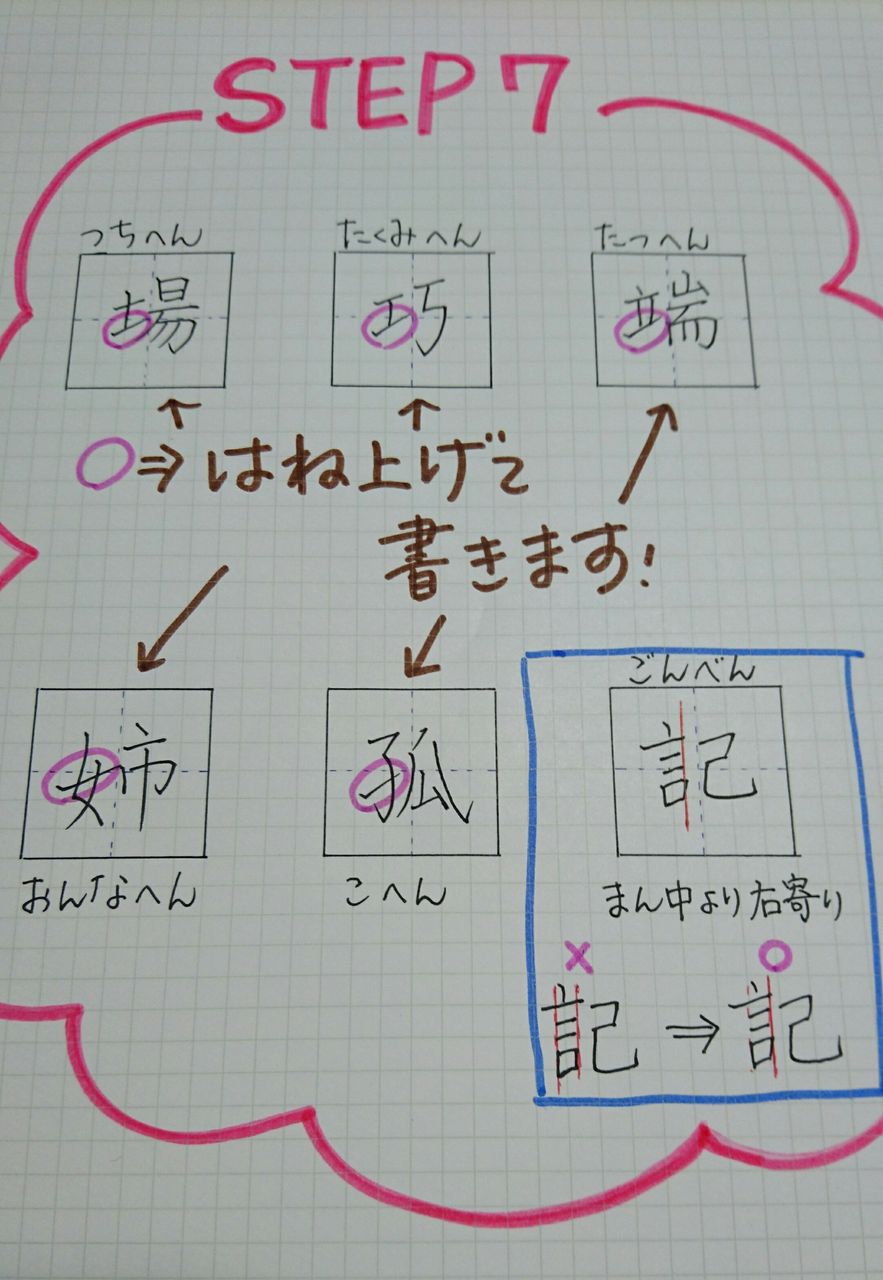 STEP7
つちへん たくみへん たつへん
場 巧 端
○⇒はね上げて
書きます!
ごんべん
姉 孤 記
おんなへん こへん まん中より右寄り
× ○
記 ⇒ 記